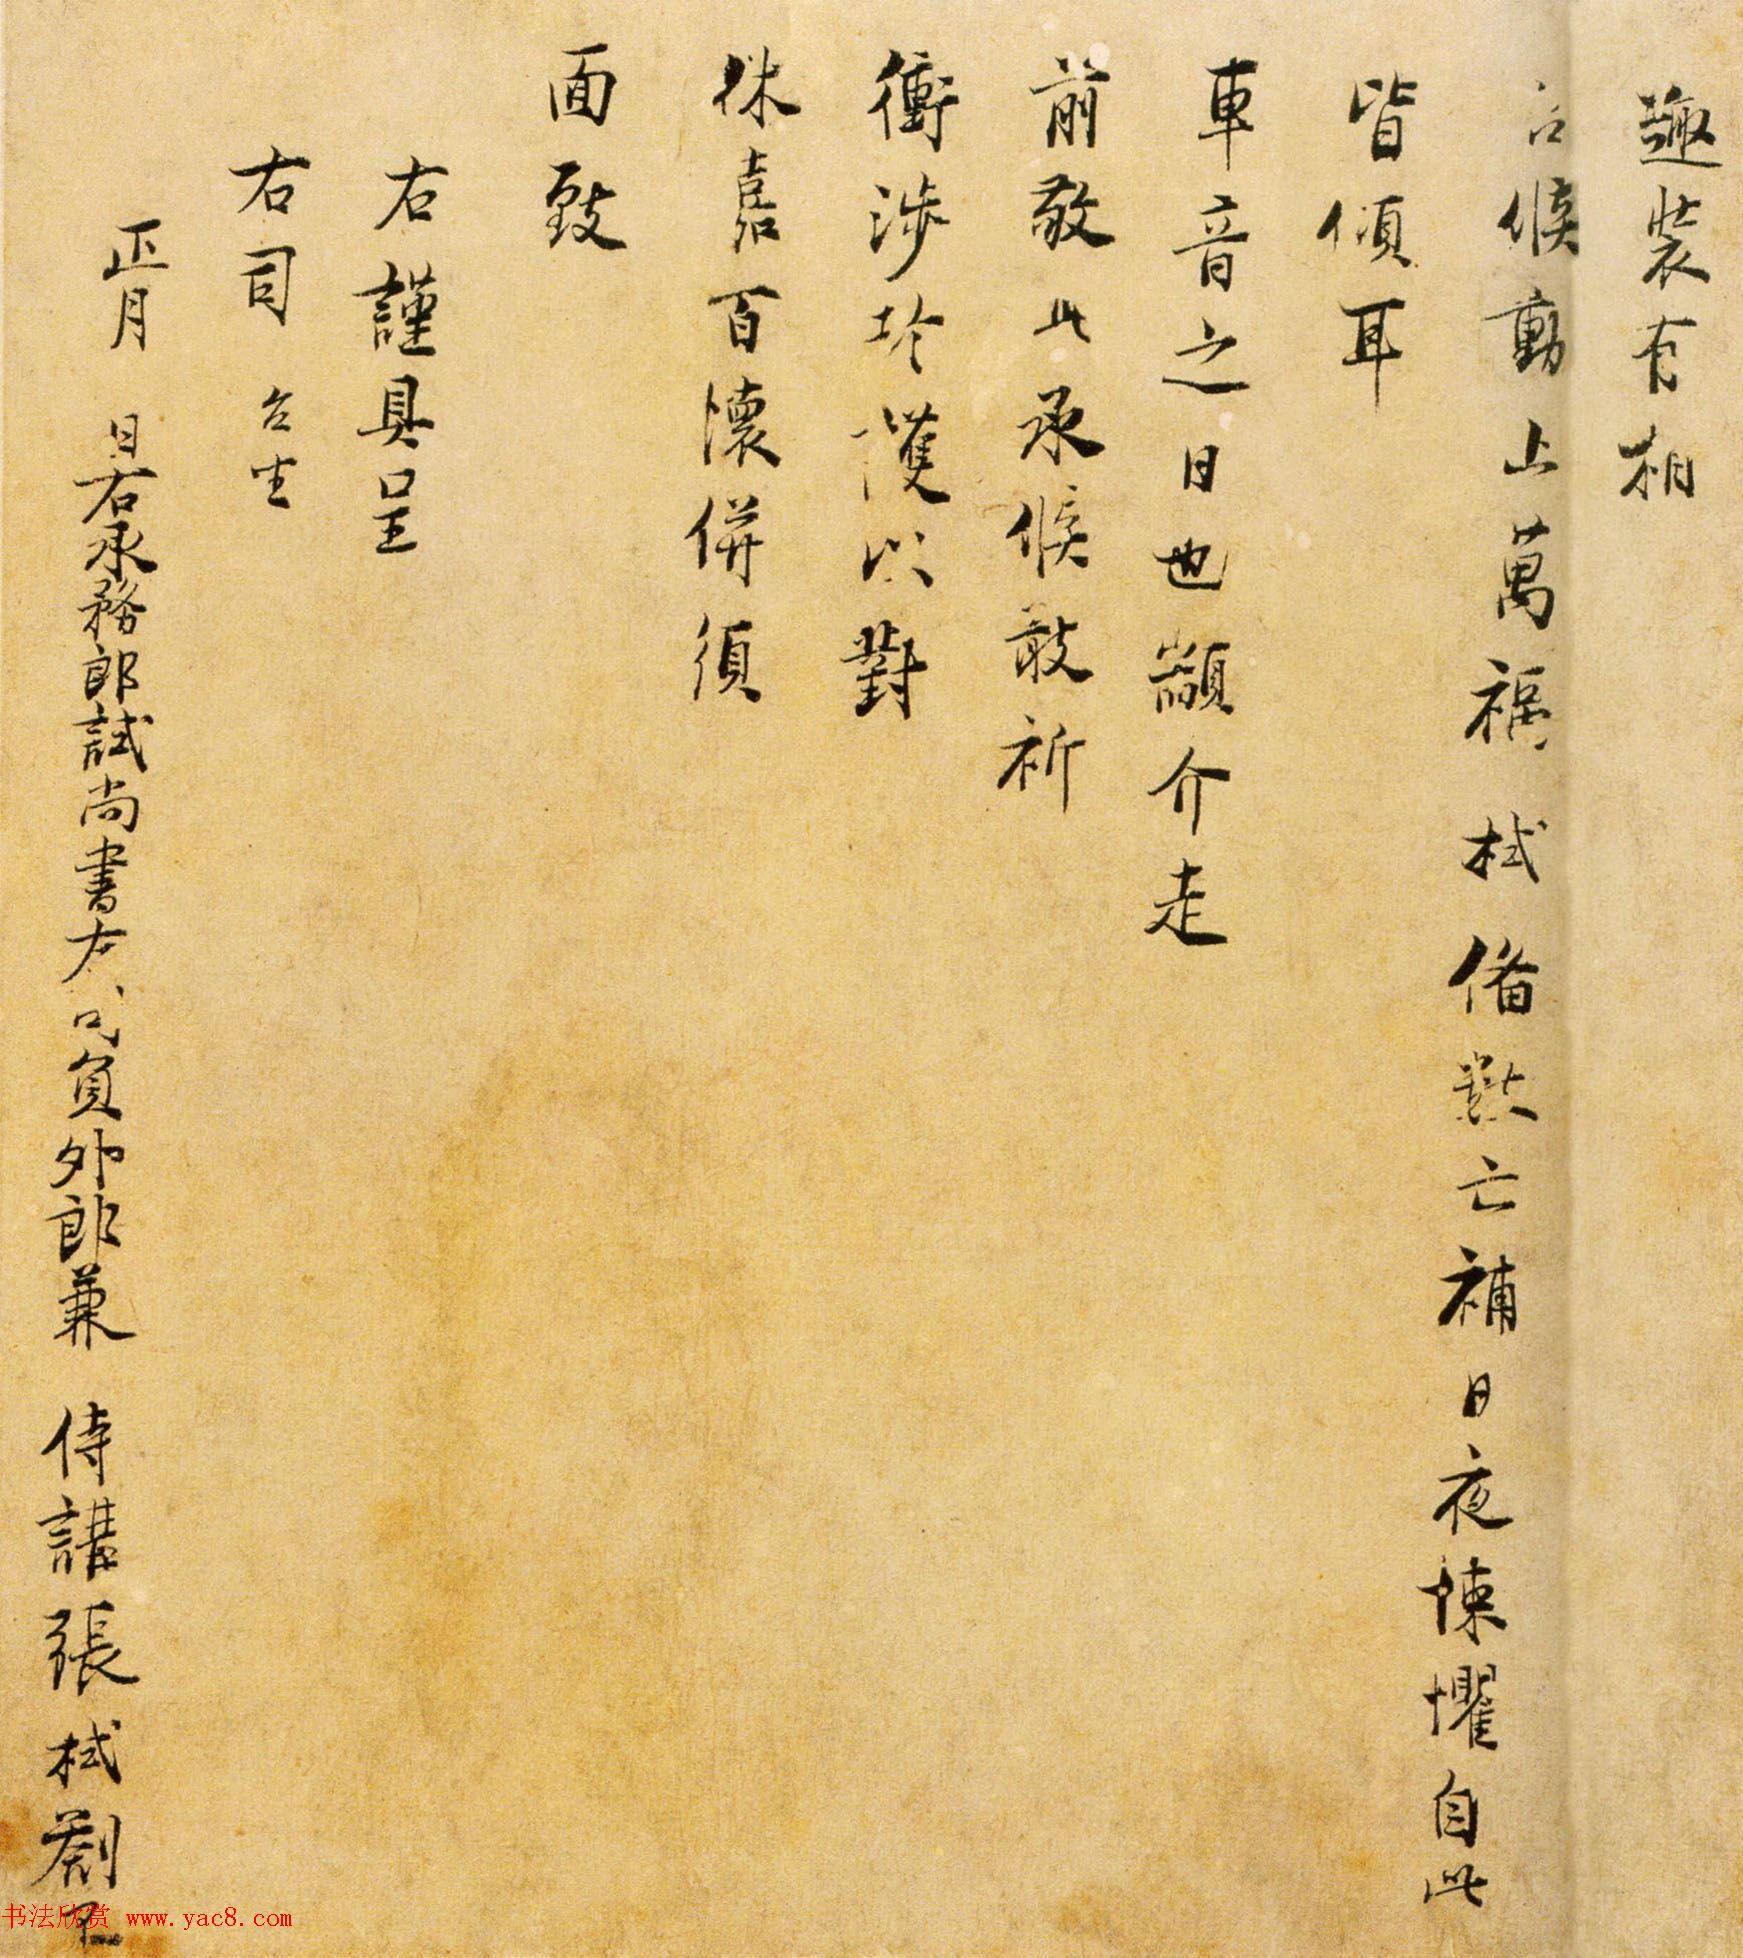 趣裝有相
台候動止萬福栻備數亡補日夜悚懼自此
皆傾耳
車音之日也顓介走
前敬此承候敢祈
衝涉珍護以對
休嘉百懷併須
面致
右謹具呈
右司 台坐
正月 日右承務郎試尚書左司員外郎兼 侍講張栻劄子
书法欣赏 www.yac8.com